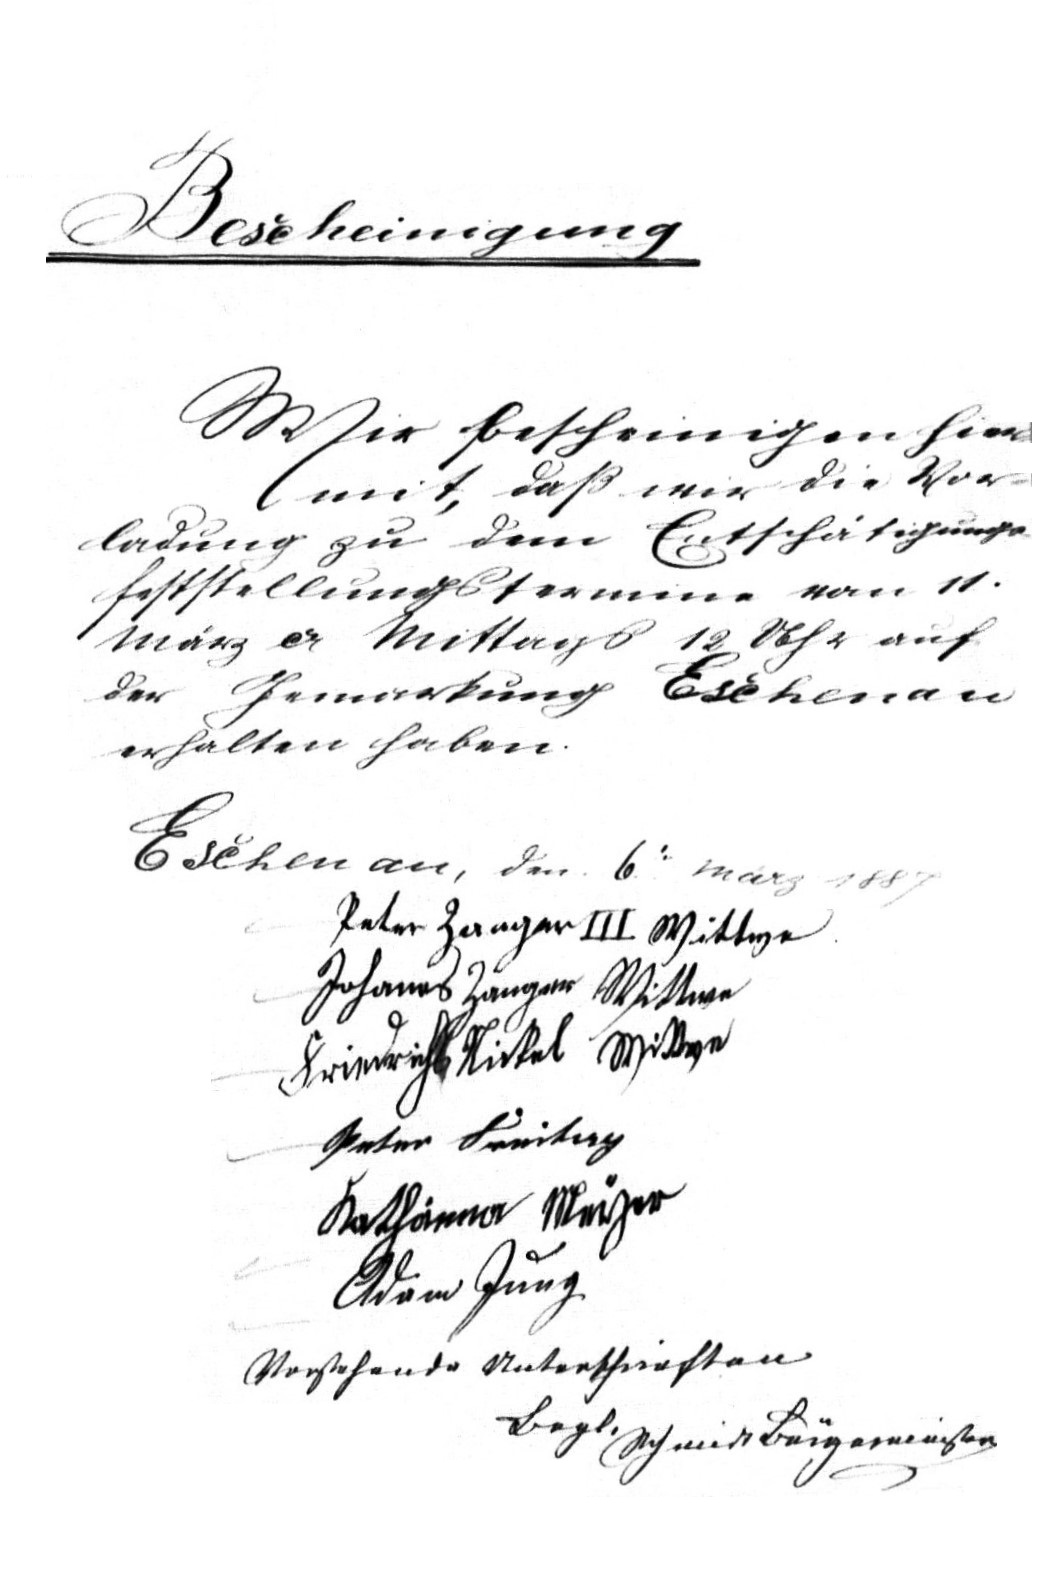 Bescheinigung
Wir bescheinigen hier
mit, daß wir die Vor-
ladung zu dem Entschätigungs
feststellungstermine vom 11.
März cr Mittags 12 Uhr auf
der Gemarkung Eschenau
erhalten haben.
Eschenau, den 6. März 1887
Peter Zanger III Wittwe
Johanes Zanger Wittwe
Friedrich Nickel Wittwe
Peter Freitag
Adam Jung
Vorstehende Unterschriften
Begl. Schmidt Bürgermeister